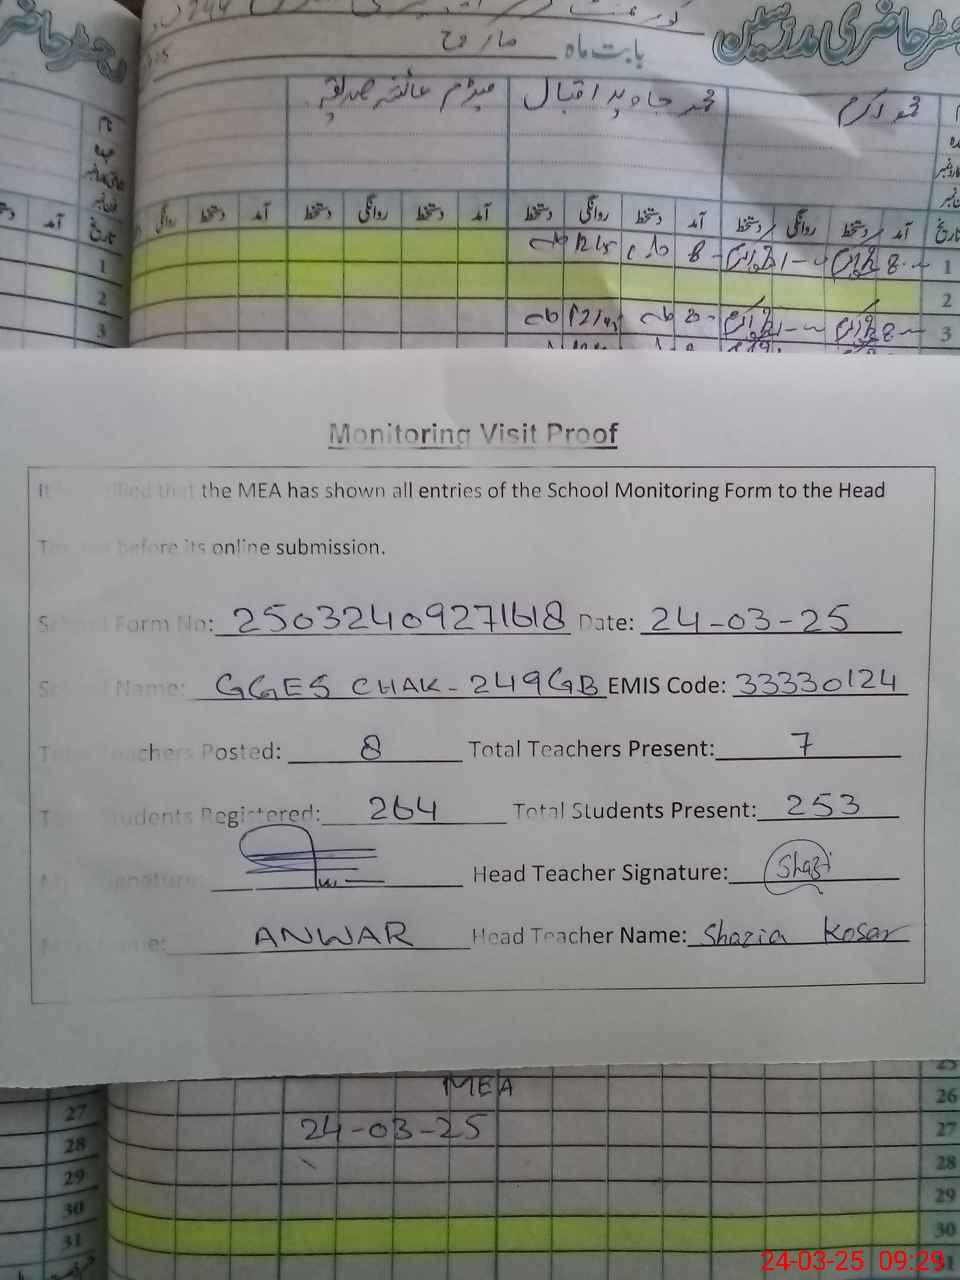 رجسٹر حاضری مدرسین
بابت ماہ مارچ
محمد اکرم محمد جاوید اقبال میڈم عائشہ صدیقہ
تاریخ آمد دستخط روانگی دستخط آمد دستخط روانگی دستخط آمد دستخط روانگی دستخط آمد دستخط روانگی
1
2
3
Monitoring Visit Proof
It is certified that the MEA has shown all entries of the School Monitoring Form to the Head
Teacher before its online submission.
School Form No: 25032409271618 Date: 24-03-25
School Name: GGES CHAK-249GB EMIS Code: 33330124
Total Teachers Posted: 8 Total Teachers Present: 7
Total Students Registered: 264 Total Students Present: 253
MEA Signature: Head Teacher Signature: Shazi
MEA Name: ANWAR Head Teacher Name: Shazia Kosar
25
MEA 26
27 24-03-25 27
28 28
29 29
30 30
31 31
24-03-25 09:29